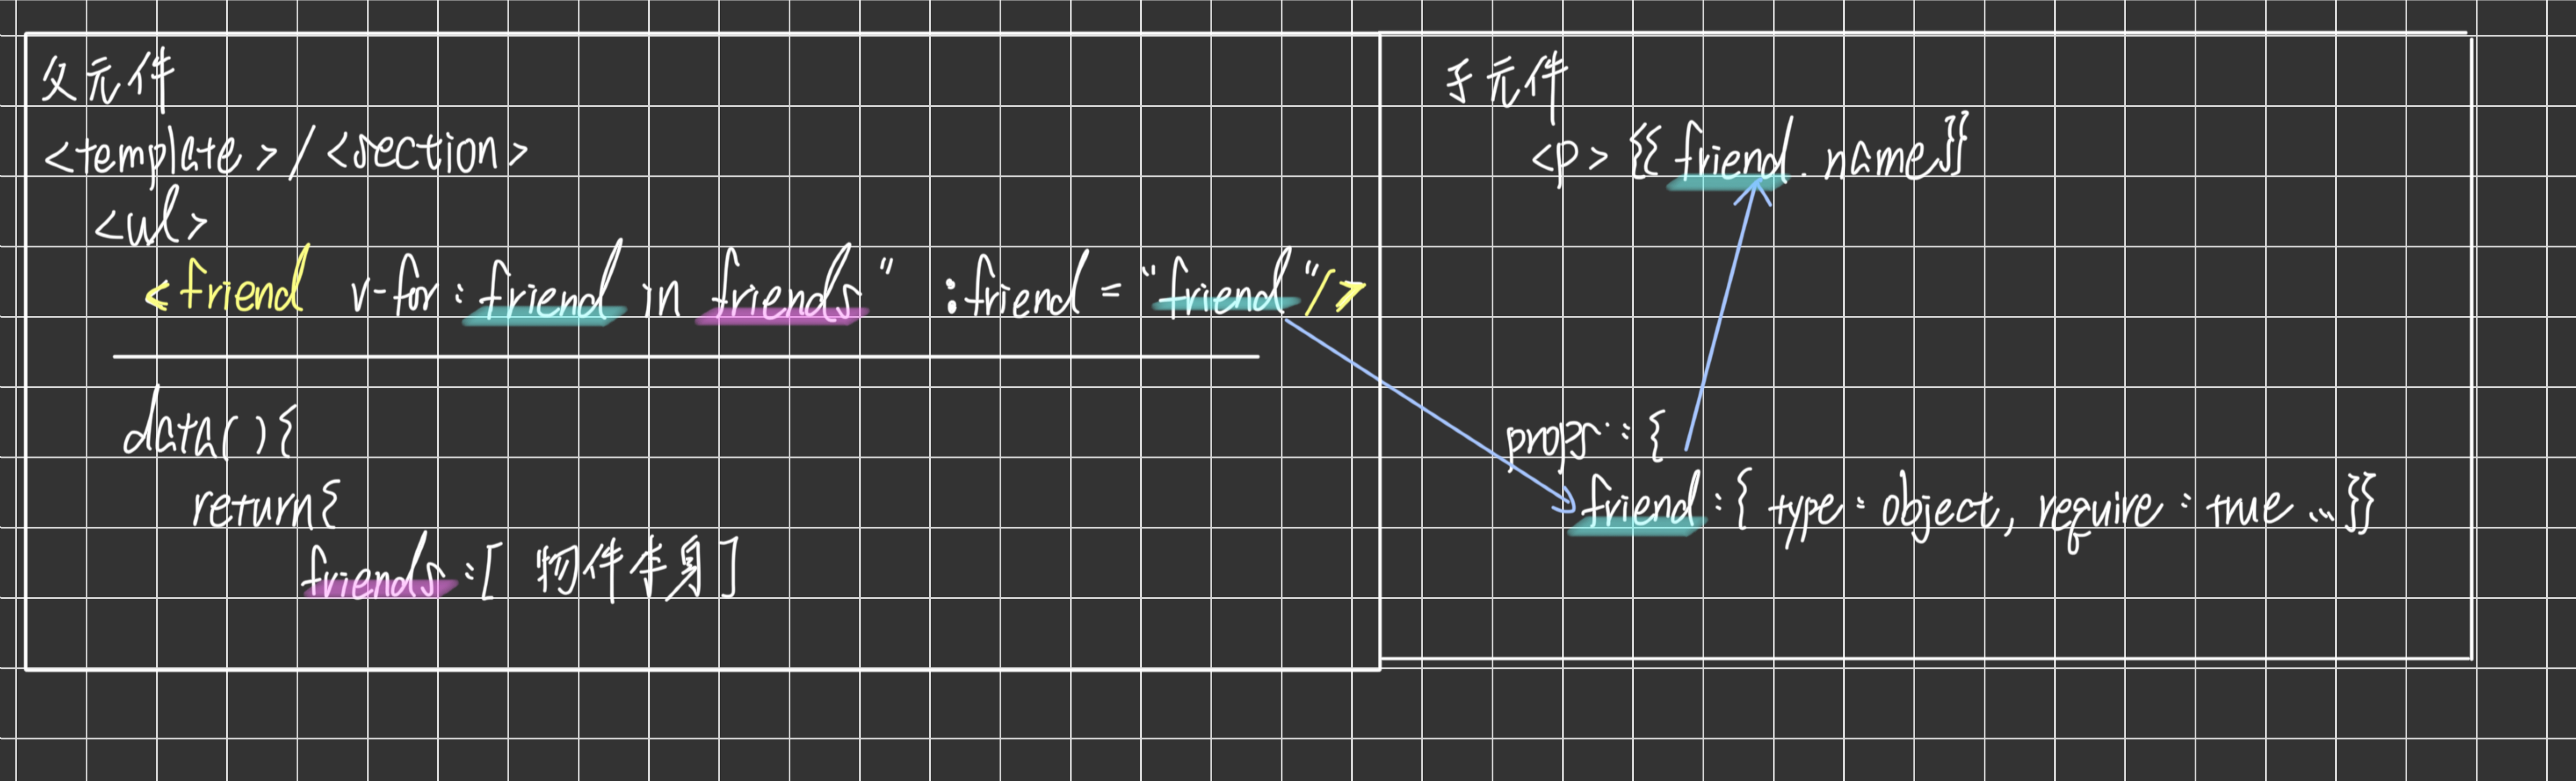 父元件
<template>/<section>
<ul>
<friend v-for:friend in friends" :friend="friend"/>
data(){
return{
friends:[物件本身]
子元件
<p>{{friend.name}}
props:{
friend:{type:object, require:true...}}